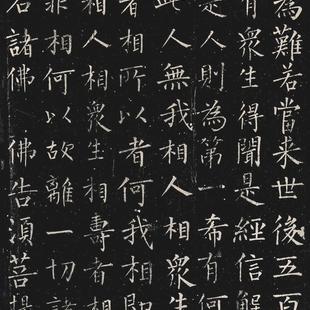 為難若當来世後五百
有眾生得聞是經信解
是人則為第一希有何
此人無我相人相眾生
者相所以者何我相即
相人相眾生相壽者相
非相何以故離一切諸
名諸佛 佛告須菩提